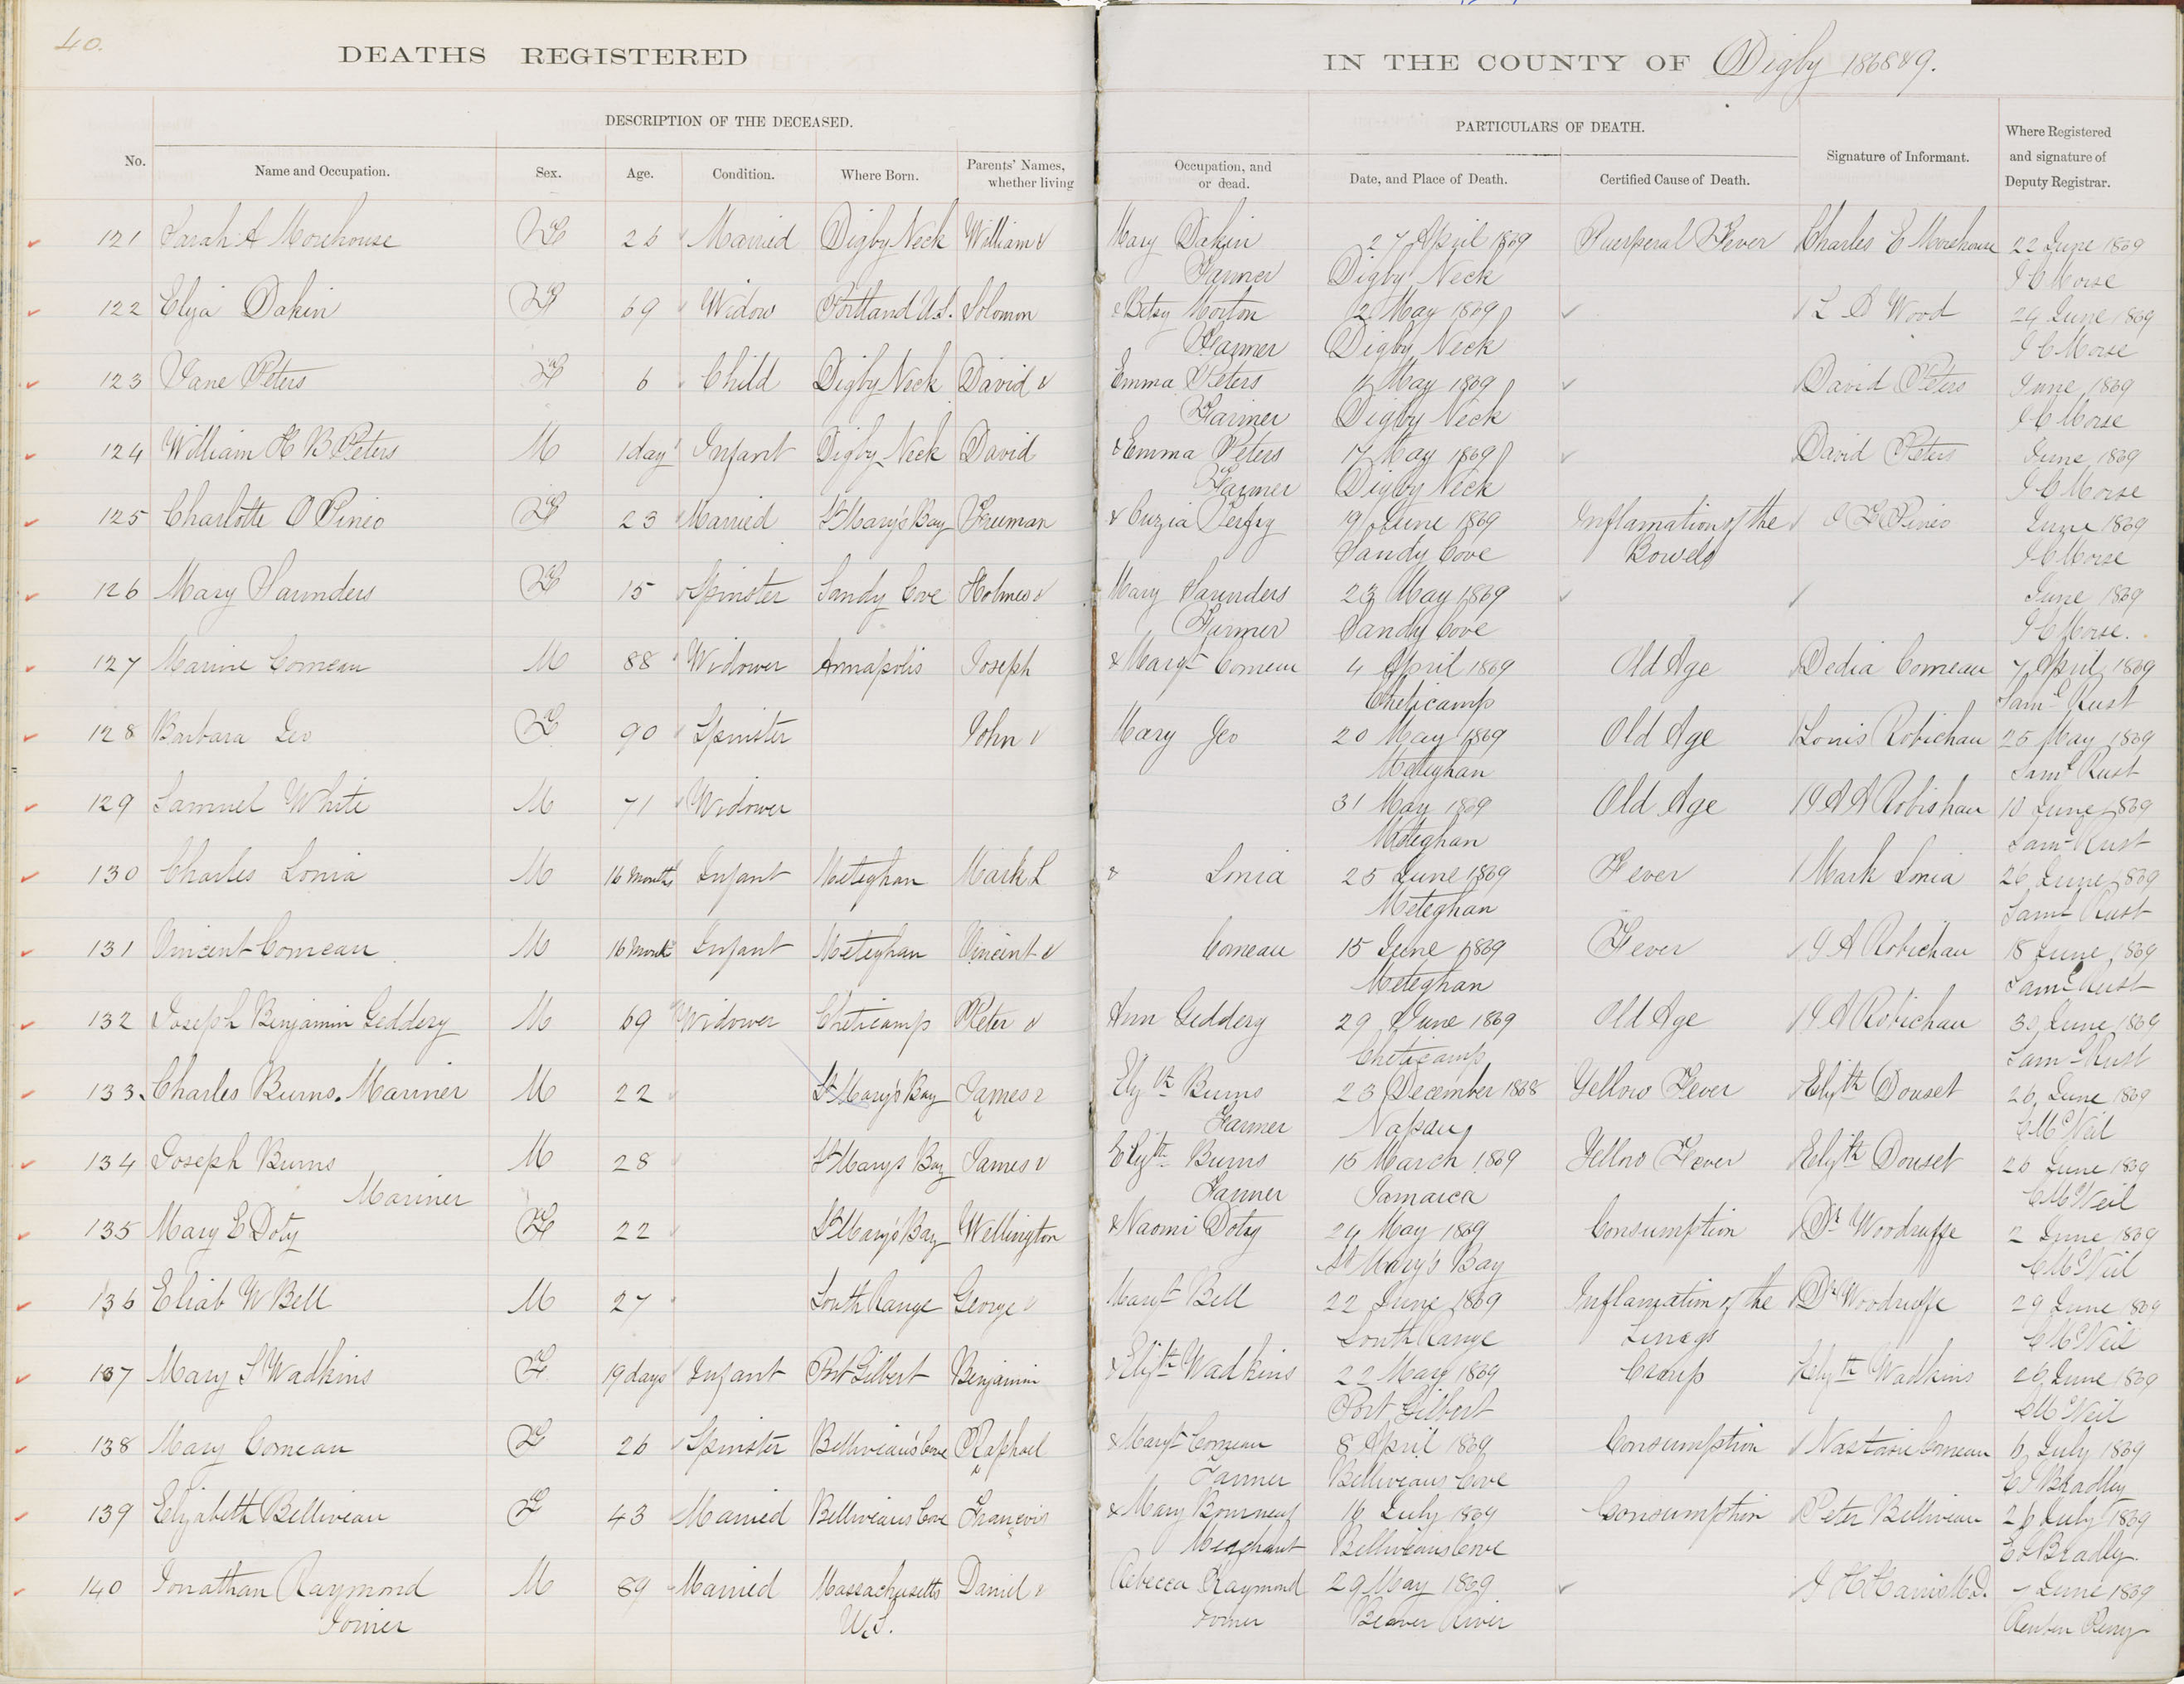 40.
DEATHS REGISTERED IN THE COUNTY OF Digby 1868&9.
DESCRIPTION OF THE DECEASED. PARTICULARS OF DEATH.
No. Name and Occupation. Sex. Age. Condition. Where Born. Parents' Names, whether living Occupation, and or dead. Date, and Place of Death. Certified Cause of Death. Signature of Informant. Where Registered and signature of Deputy Registrar.
121 Sarah A Morehouse F 26 Married Digby Neck William & Mary Dakin 27 April 1869 Puerperal Fever Charles E Morehouse 22 June 1869
Farmer Digby Neck I C Morse
122 Eliza Dakin F 69 Widow Portland U.S. Solomon & Betsy Morton 12 May 1869 L D Wood 24 June 1869
Farmer Digby Neck I C Morse
123 Jane Peters F 6 Child Digby Neck David & Emma Peters May 1869 David Peters June 1869
Farmer Digby Neck I C Morse
124 William H B Peters M 1 day Infant Digby Neck David & Emma Peters 17 May 1869 David Peters June 1869
Farmer Digby Neck I C Morse
125 Charlotte O Pineo F 23 Married St Mary's Bay Freeman & Cuzia 19 June 1869 Inflamation of the Pineo June 1869
Sandy Cove Bowels I C Morse
126 Mary Saunders F 15 Spinster Sandy Cove Holmes & Mary Saunders 23 May 1869 June 1869
Farmer Sandy Cove I C Morse.
127 Marine Comeau M 88 Widower Annapolis Joseph & Margt Comeau 4 April 1869 Old Age Dedia Comeau 7 April 1869
Cheticamp Saml Rust
128 Barbara Geo F 90 Spinster John & Mary Geo 20 May 1869 Old Age Louis Robichau 25 May 1869
Meteghan Saml Rust
129 Samuel White M 71 Widower 31 May 1869 Old Age A Robishau 10 June 1869
Meteghan Saml Rust
130 Charles Lonia M 16 months Infant Meteghan Mark L & Lonia 25 June 1869 Fever Mark Lonia 26 June 1869
Meteghan Saml Rust
131 Vincent Comeau M 16 Month Infant Meteghan Vincent & Comeau 15 June 1869 Fever A Robichau 18 June 1869
Meteghan Saml Rust
132 Joseph Benjamin Geddery M 69 Widower Cheticamp Peter & Ann Geddery 29 June 1869 Old Age A Robichau 30 June 1869
Cheticamp Saml Rust
133. Charles Burns. Mariner M 22 St Mary's Bay James & Elyth Burns 23 December 1868 Yellow Fever Elyth Douset 26 June 1869
Farmer Nassau C McNeil
134 Joseph Burns M 28 St Mary's Bay James & Elyth Burns 15 March 1869 Yellow Fever Elyth Douset 26 June 1869
Mariner Farmer Jamaica C McNeil
135 Mary E Doty F 22 St Mary's Bay Wellington & Naomi Doty 24 May 1869 Consumption Dr Woodruffe 2 June 1869
St Mary's Bay C McNeil
136 Eliab W Bell M 27 South Range George & Margt Bell 22 June 1869 Inflamation of the Dr Woodruffe 29 June 1869
South Range Lungs C McNeil
137 Mary S Wadkins F 19 days Infant Port Gilbert Benjamin & Elyth Wadkins 22 May 1869 Cramp Elyth Wadkins 26 June 1869
Port Gilbert C McNeil
138 Mary Comeau F 26 Spinster Belliveau's Cove Raphael & Margt Comeau 8 April 1869 Consumption Nastasie Comeau 6 July 1869
Farmer Belliveaus Cove C S Bradley
139 Elizabeth Belliveau F 43 Married Belliveaus Cove Francois & Mary Bourneuf 16 July 1869 Consumption Peter Belliveau 26 July 1869
Merchant Belliveaus Cove C S Bradley.
140 Jonathan Raymond M 89 Married Massachusetts Daniel & Rebecca Raymond 29 May 1869 Harris M.D. - June 1869
Joiner U.S. Joiner Beaver River Reuben Perry